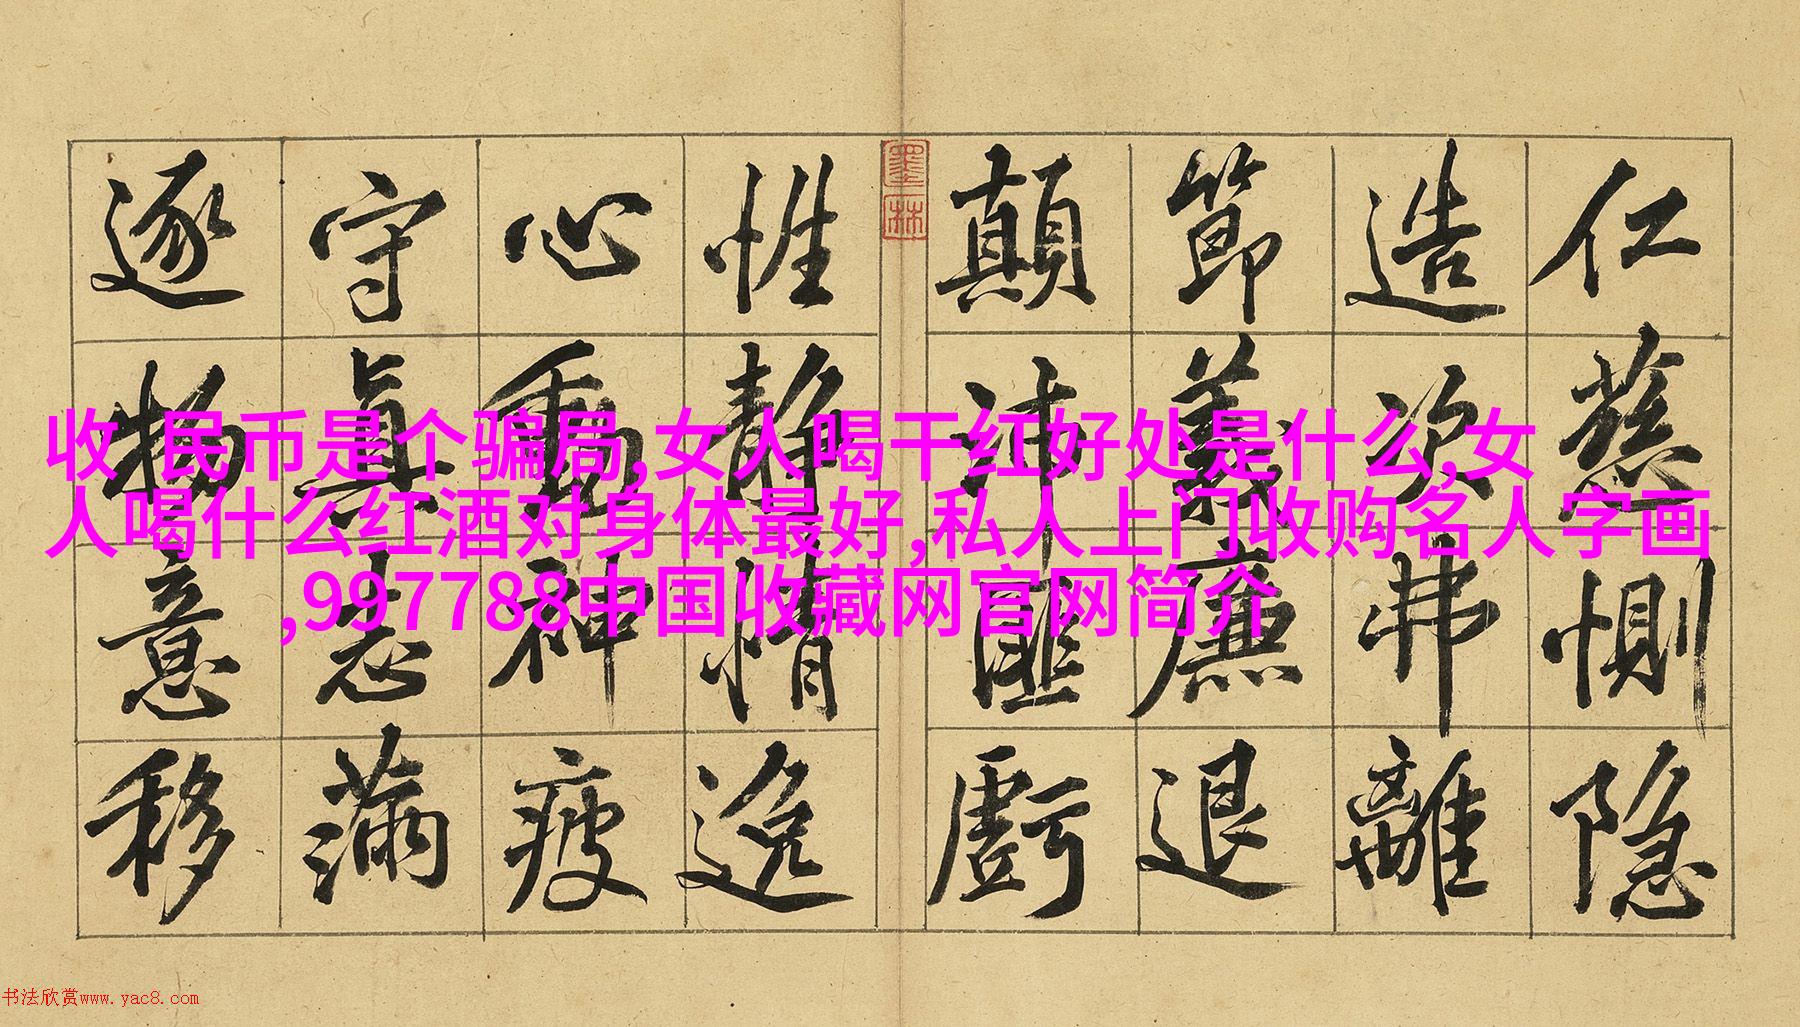 收 民币是个骗局,女人喝干红好处是什么,女
人喝什么红酒对身体最好,私人上门收购名人字画
,997788中国收藏网官网简介
仁慈惻隐
造次弗離
節義廉退
顛沛匪虧
墨林
性静情逸
心動神疲
守真志滿
逐物意移
书法欣赏www.yac8.com